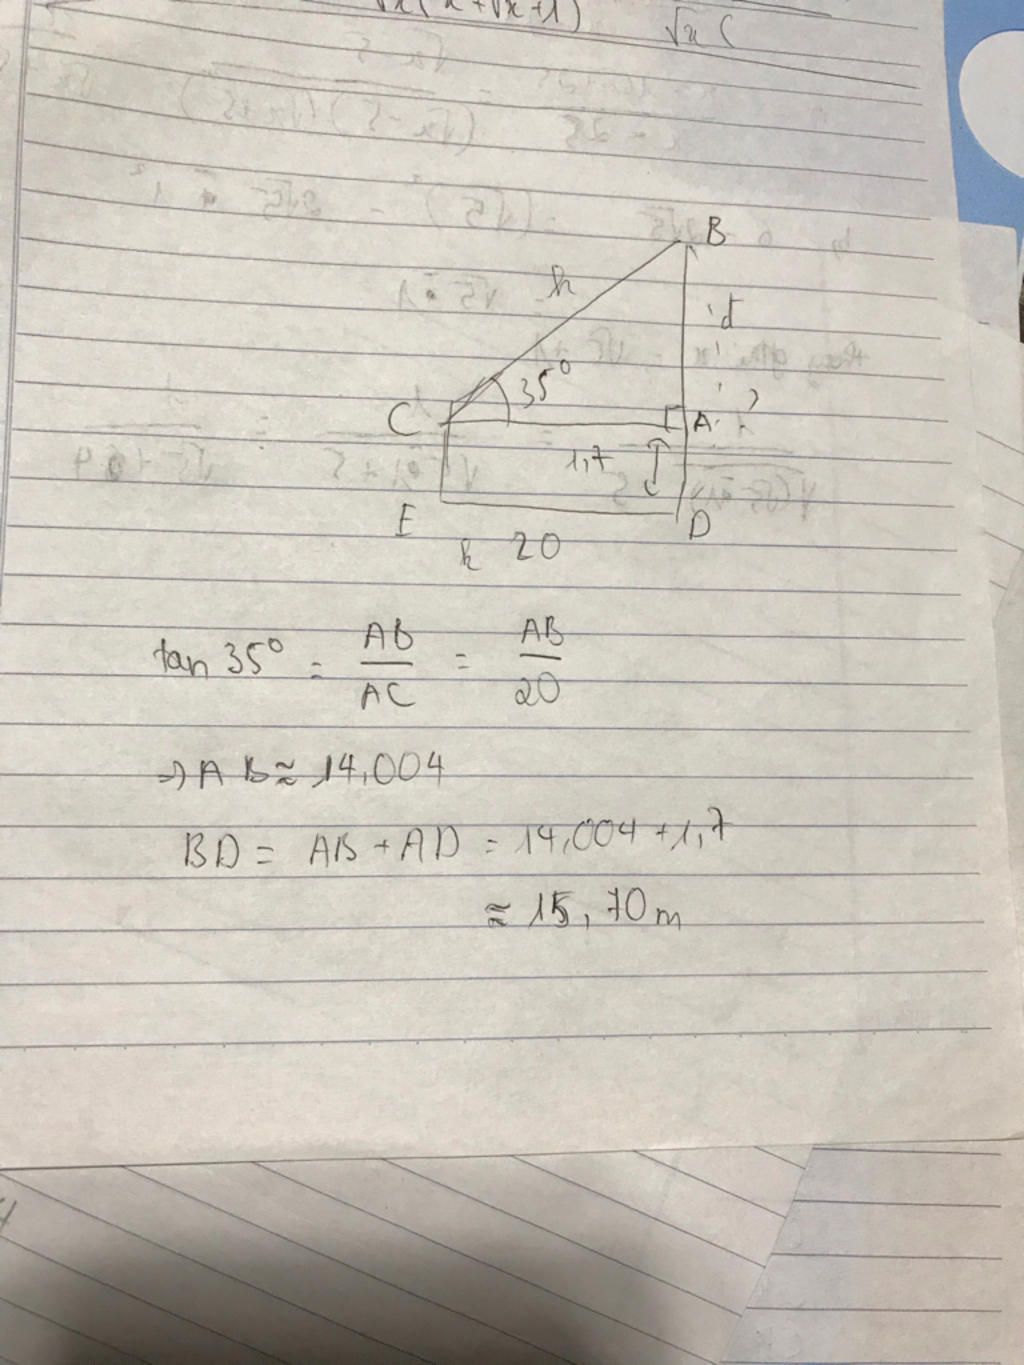 √x(x+√x+1) √x (
B
h
đ
35°
C
A
1,7
E
D
k 20
tan 35° = AB/AC = AB/20
=> AB ≈ 14,004
BD = AB + AD = 14,004 + 1,7
≈ 15,70 m